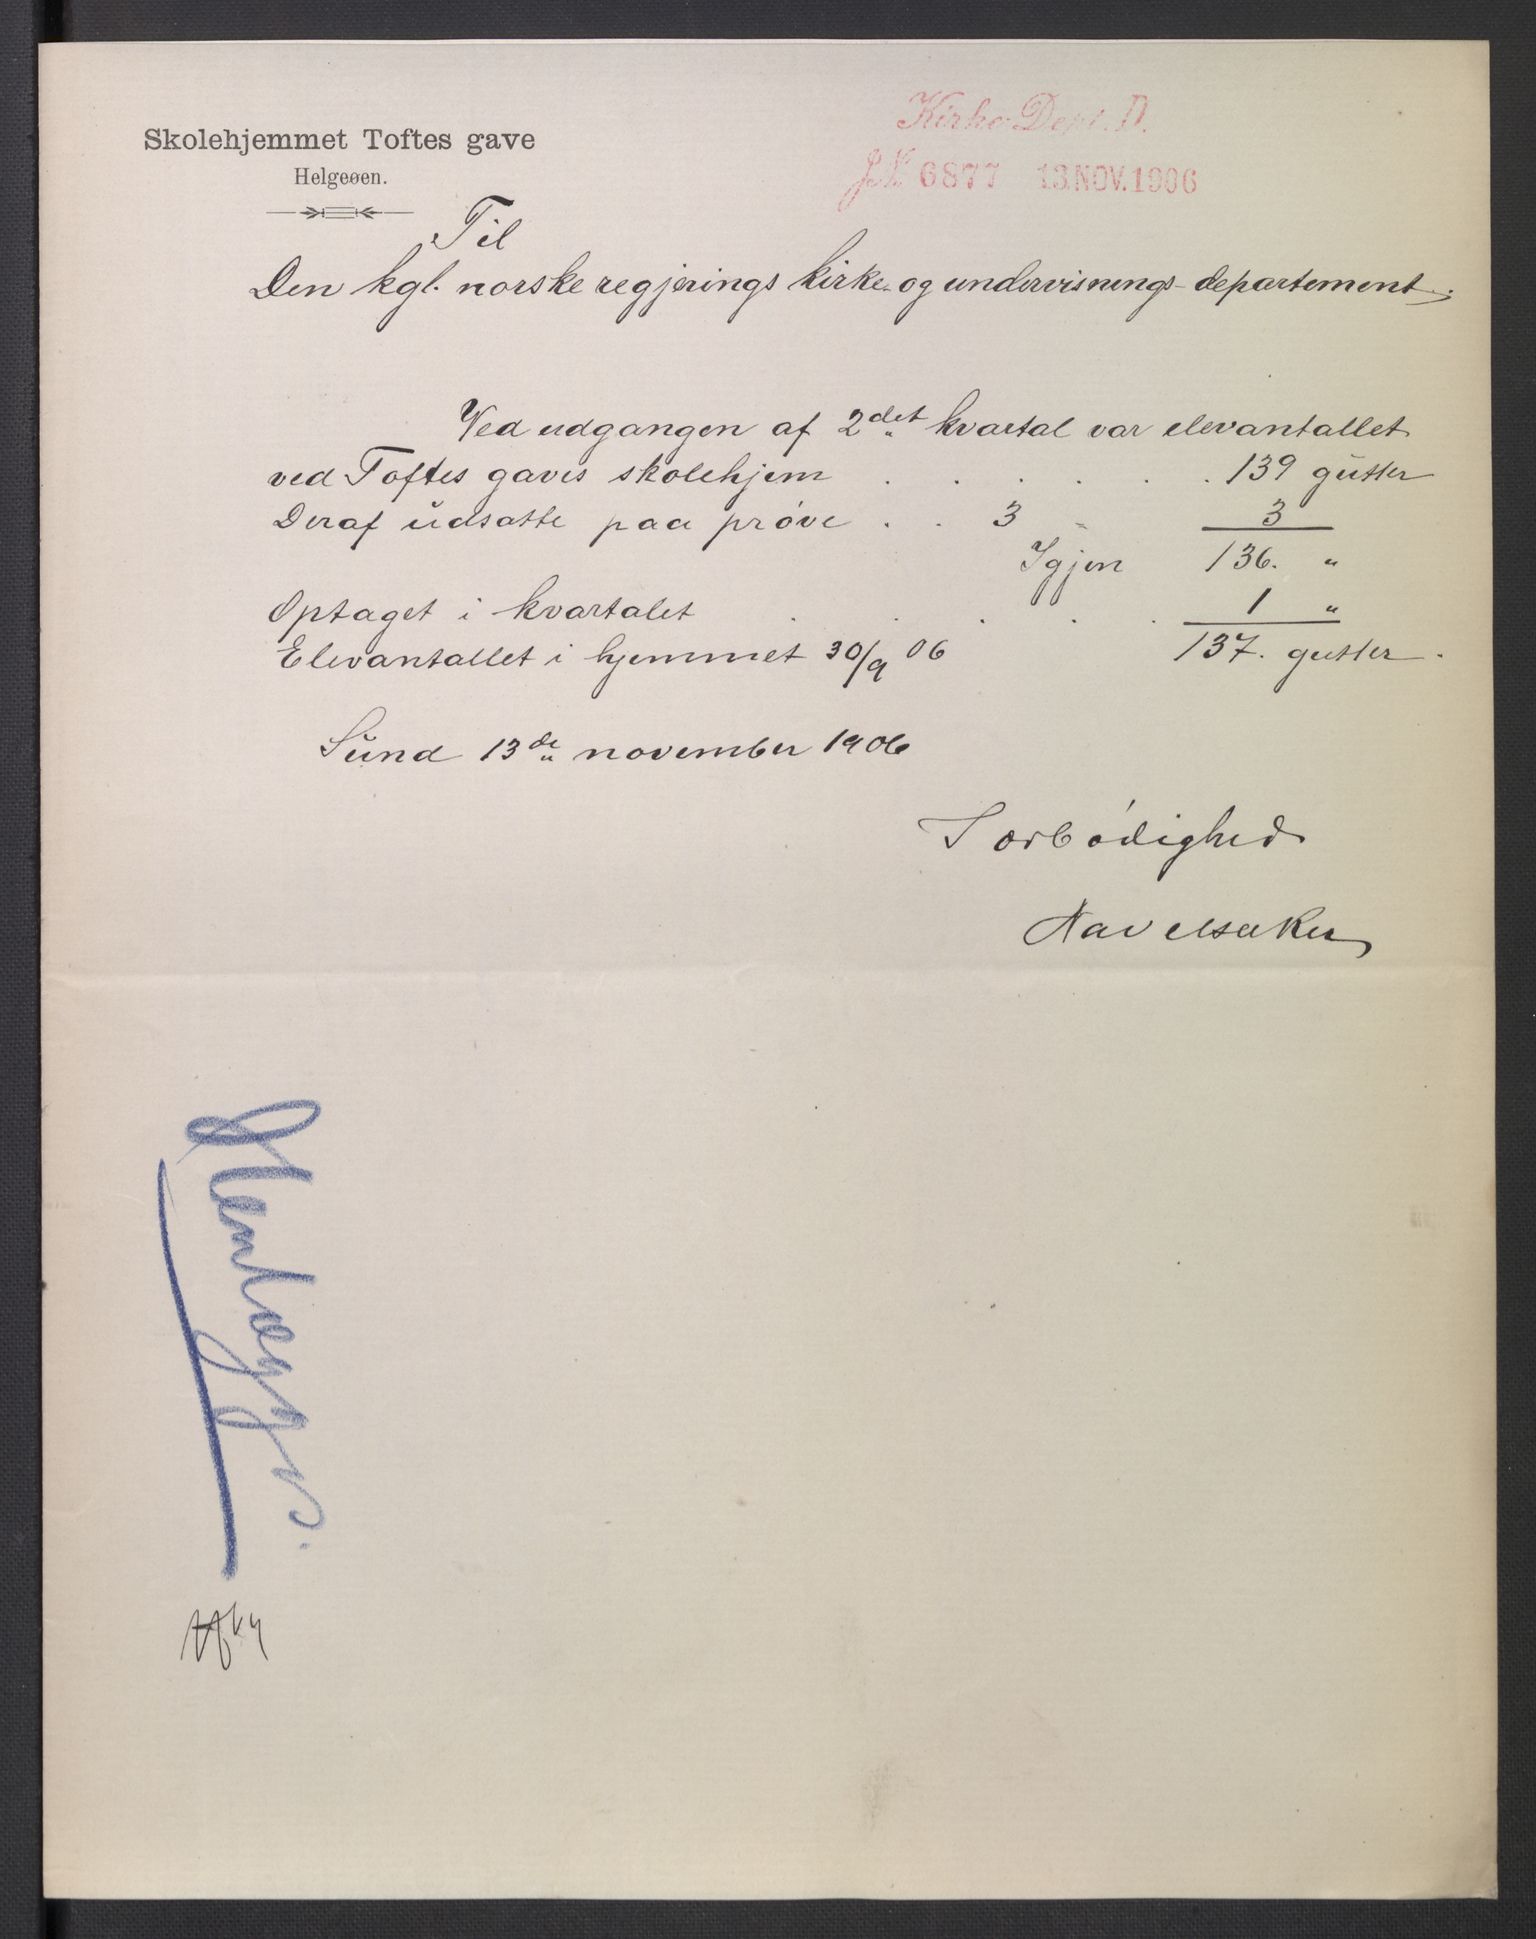 Skolehjemmet Toftes gave
Helgeøen.
Kirke-Dept. D.
J.N. 6877 13.NOV.1906
Til
Den kgl. norske regjerings kirke- og undervisnings-departement.
Ved udgangen af 2det kvartal var elevantallet
ved Toftes gaves skolehjem . . . . . . 139 gutter
Deraf udsatte paa prøve . . 3 " 3
Igjen 136. "
Optaget i kvartalet . . . . . 1 "
Elevantallet i hjemmet 30/9 06 137. gutter.
Sund 13de november 1906
I ærbødighed
Havelsaker
Henlægges.